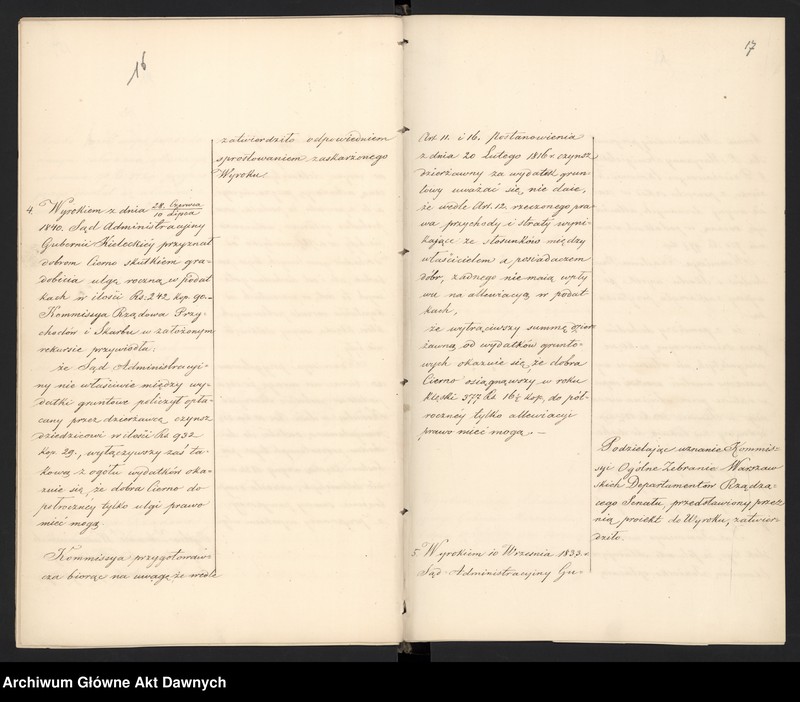 16
zatwierdziło odpowiedniem
sprostowaniem zaskarżonego
Wyroku.
4. Wyrokiem z dnia 28 Czerwca / 10 Lipca
1840. Sąd Administracyjny
Gubernii Kieleckiéj przyznał
dobrom Cierno skutkiem gra-
dobicia ulgę roczną w podat
kach w ilości Rs. 242 kop. 90.-
Kommissya Rządowa Przy-
chodów i Skarbu w założonym
rekursie przywiodła:
że Sąd Administracyi-
ny nie właściwie między wy-
datki gruntowe policzył opła-
cany przez dzierżawcę czynsz
dziedzicowi w ilości Rs 932
kop. 29., wyłączywszy zaś ta-
kową z ogółu wydatków oka-
zuie się, że dobra Cierno do
półrocznéy tylko ulgi prawo
mieć mogą.
Kommissya przygotowaw-
cza biorąc na uwagę, że wedle
17
Art. 11. i 16. Postanowienia
z dnia 20 Lutego 1816 r. czynsz
dzierżawny za wydatek grun
towy uważać się nie daie,
że wedle Art. 12. rzeczonego pra
wa przychody i straty wyni
kaiące ze stosunków między
właścicielem a posiadaczem
dóbr, żadnego nie maią wpły
wu na allewiacyą w podat
kach,
że wytrąciwszy summę dzier
żawną od wydatków grunto-
wych okazuie się, że dobra
Cierno osiągnąwszy w roku
klęski 577 Rs 16½ kop. do pół-
rocznéy tylko allewiacyi
prawo mieć mogą. —
Podzielaiąc uznanie Kommis-
syi Ogólne Zebranie Warszaw
skich Departamentów Rządzą-
cego Senatu, przedstawiony przez
nią proiekt do Wyroku, zatwier
dziło.
5. Wyrokiem 10 Września 1833. r.
Sąd Administracyjny Gu-
Archiwum Główne Akt Dawnych